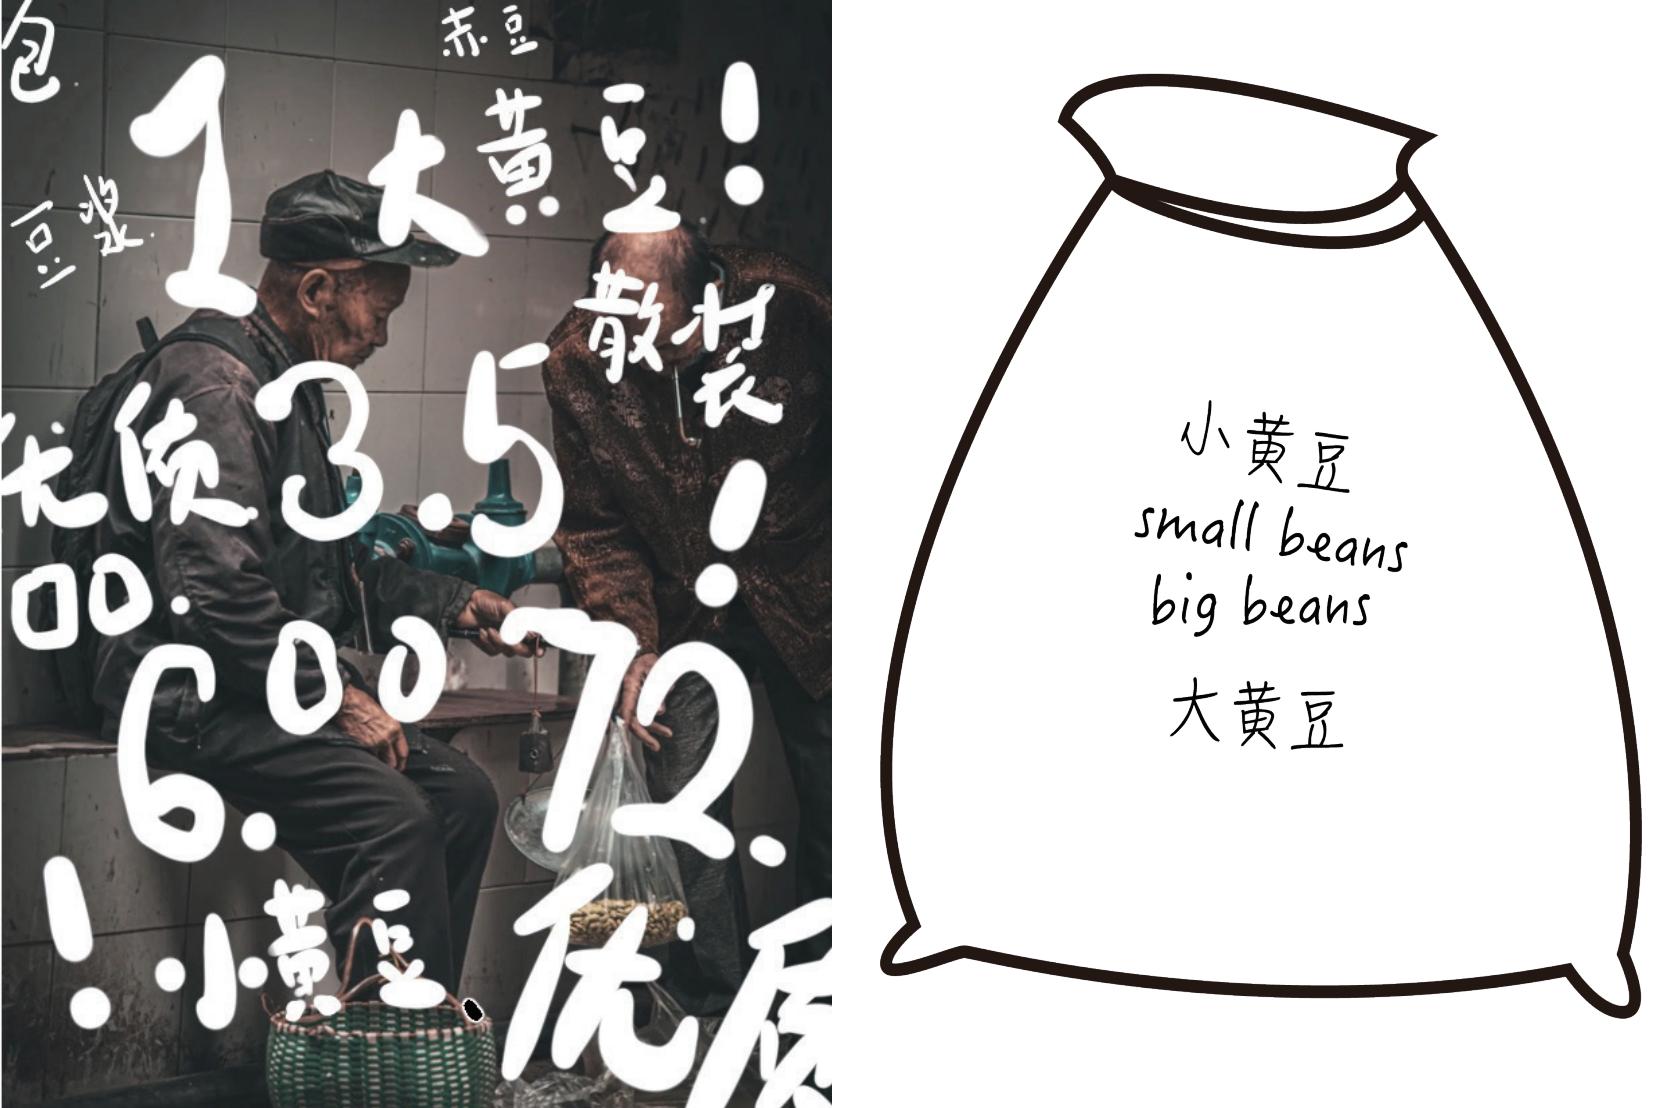 包
赤豆
1 大黄豆!
豆浆
散装
优质 3.5
品. !
6.00 72.
! 小黄豆 优质
小黄豆
small beans
big beans
大黄豆